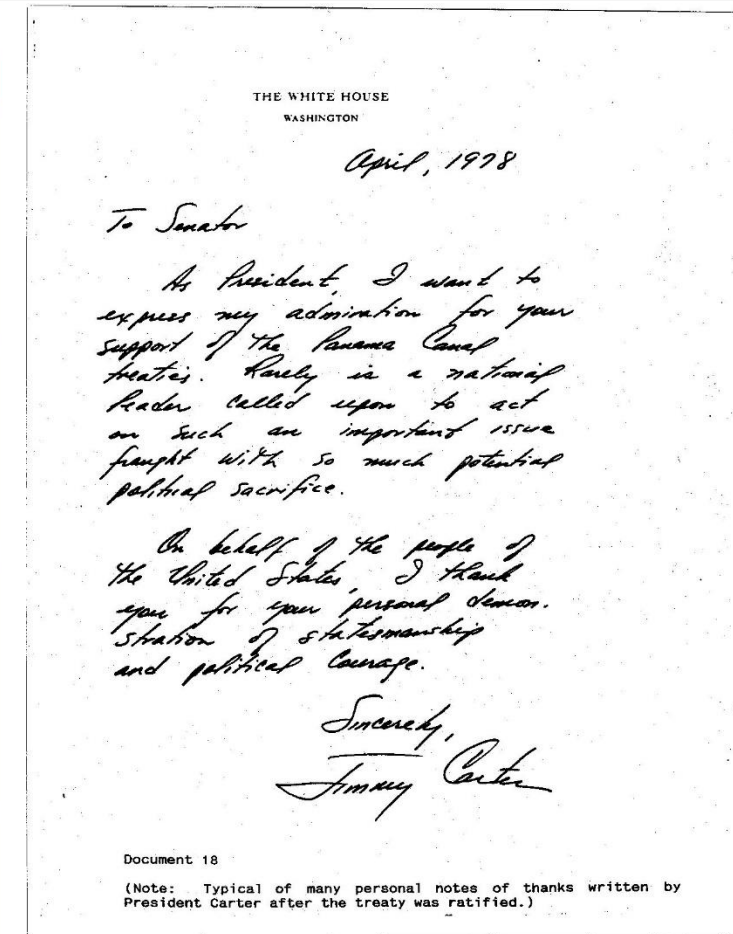 THE WHITE HOUSE
WASHINGTON
April, 1978
To Senator
As President, I want to
express my admiration for your
support of the Panama Canal
treaties. Rarely is a national
leader called upon to act
on such an important issue
fraught with so much potential
political sacrifice.
On behalf of the people of
the United States, I thank
you for your personal demon-
stration of statesmanship
and political courage.
Sincerely,
Jimmy Carter
Document 18
(Note: Typical of many personal notes of thanks written by
President Carter after the treaty was ratified.)